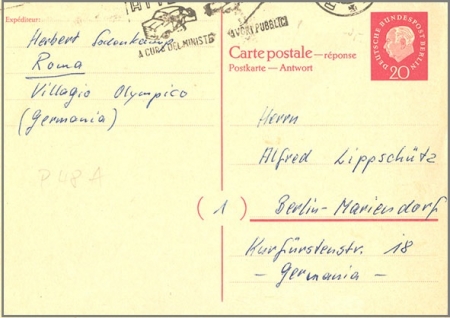 Expéditeur:
Herbert
Roma
Villagio Olympico
(Germania)
P 48 A
A CURA DEL MINISTE
AVORI PUBBLICI
Carte postale — réponse
Postkarte — Antwort
DEUTSCHE BUNDESPOST BERLIN
20
Herrn
Alfred Lippschütz
(1) Berlin-Mariendorf
Kurfürstenstr. 18
- Germania -